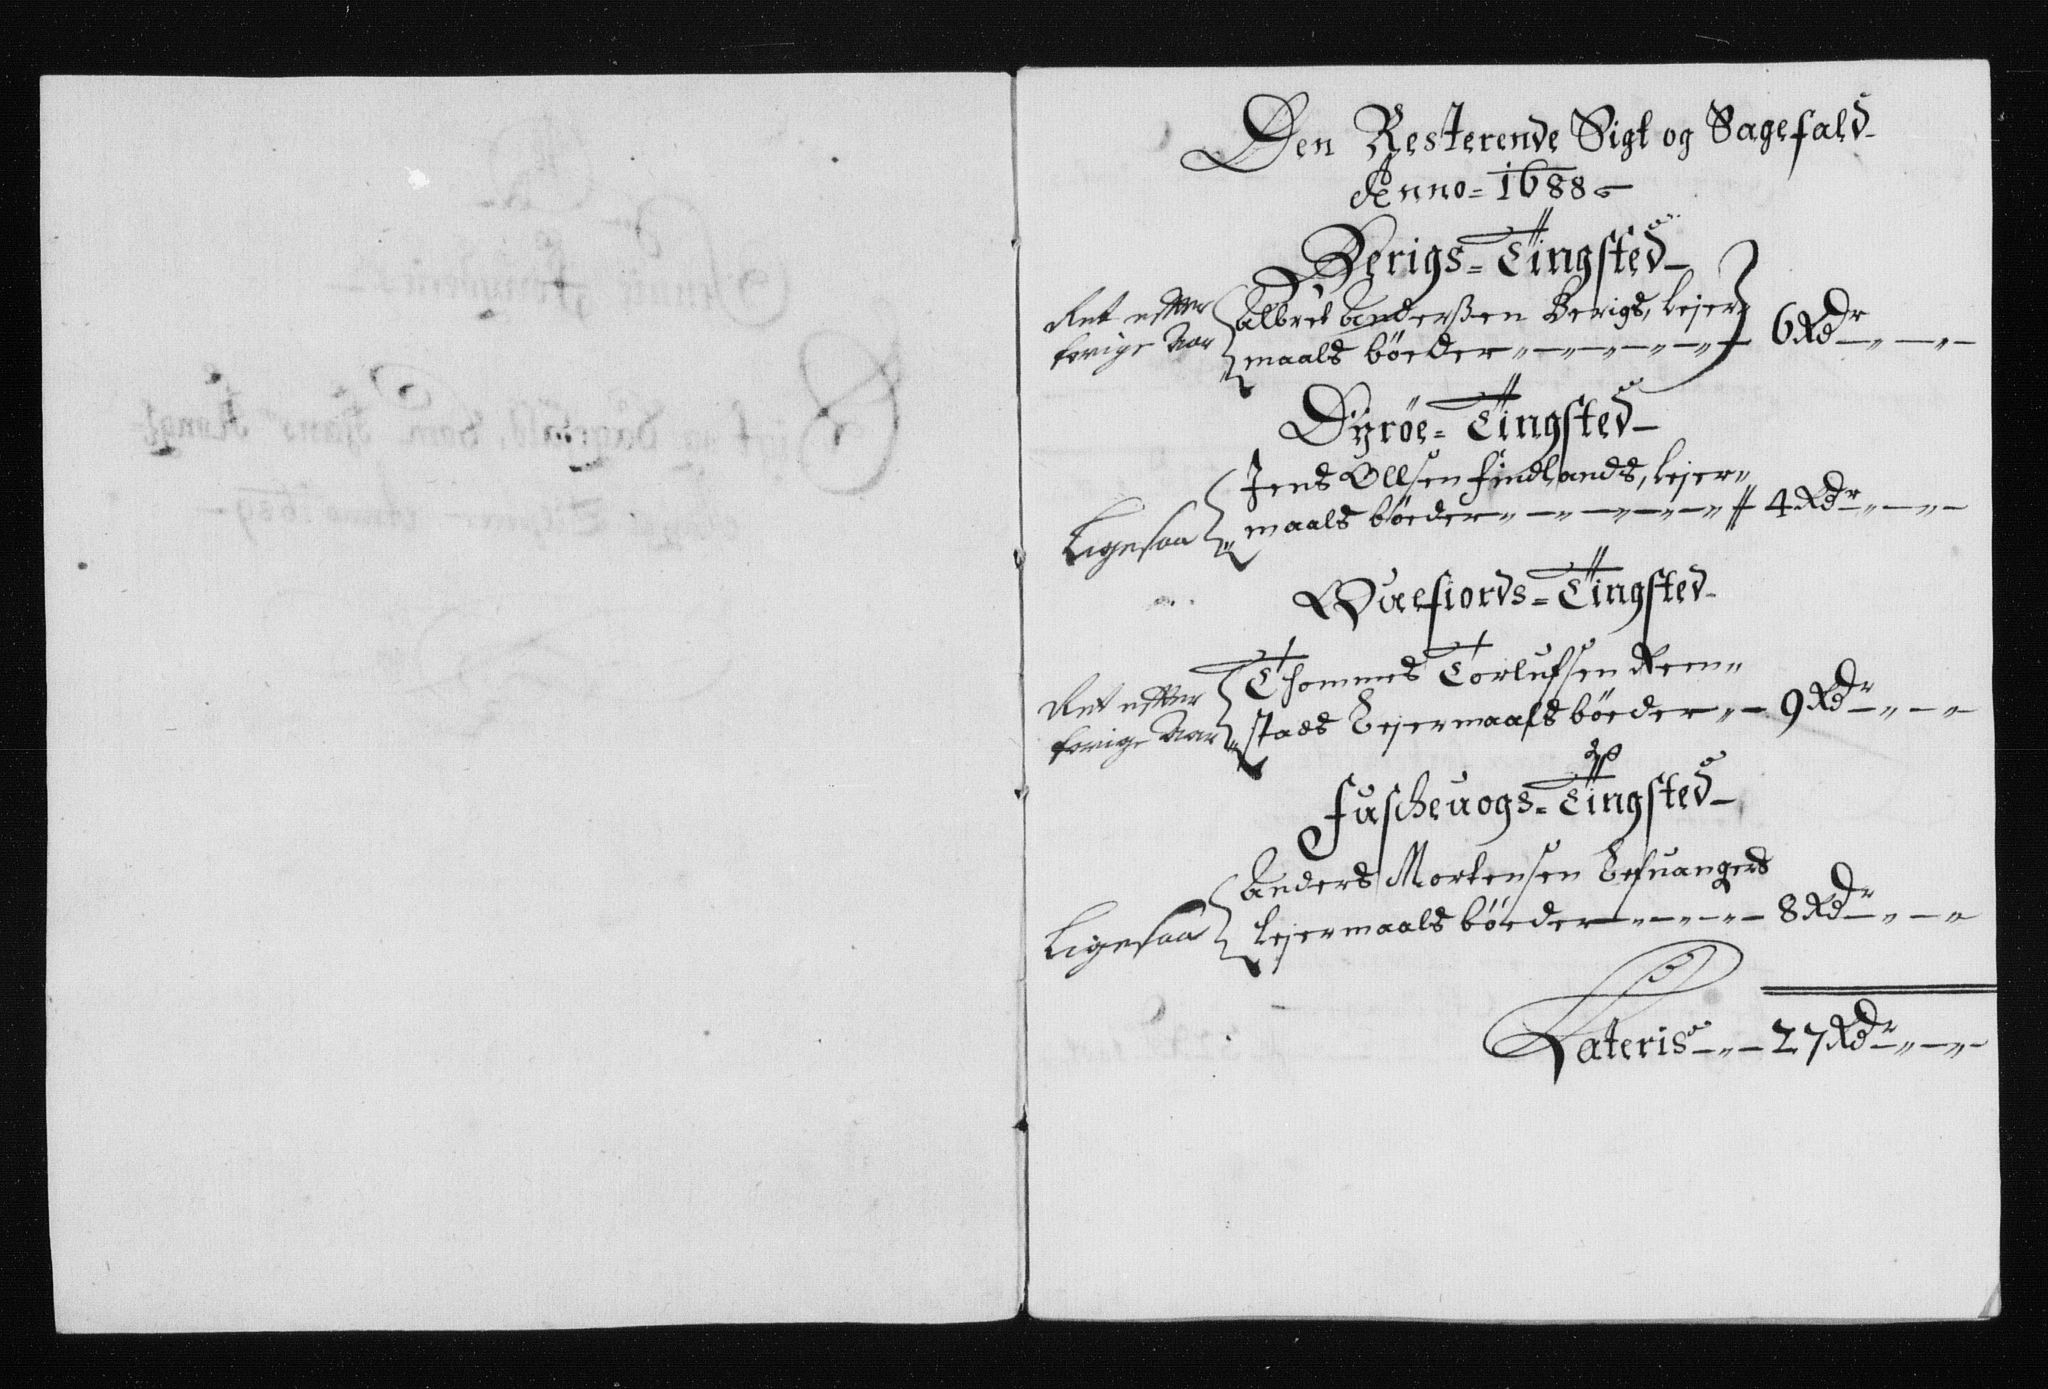 Den Resterende Sigt og Sagefald
Anno = 1688
Berigs = Tingsted
Ret efter
forige Aar
Albret Anderßen Berigs, Lejer„
maals böeder 6 Rdr
Dÿröe = Tingsted
Ligesaa
Jens Ollsen Findlands, Lejer„
maals böeder 4 Rdr
Quefiords = Tingsted
Ret efter
forige Aar
Thommes Torlufsen Reem„
stads Lejermaals böeder 9 Rdr
Fuscheuogs = Tingsted
Ligesaa
Anders Mortensen Lefuangers
Lejermaals böeder 8 Rdr
Lateris 27 Rdr